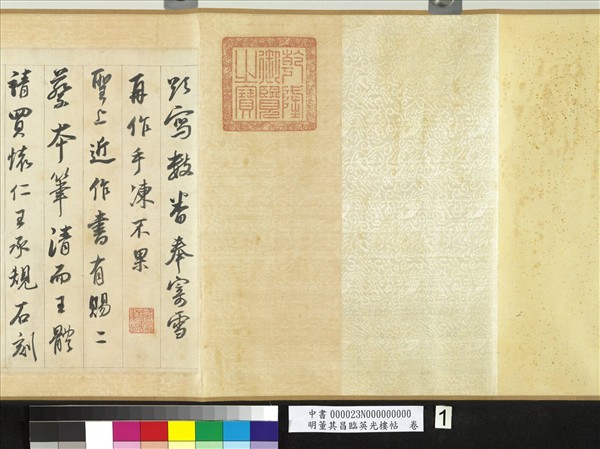 乾隆御覽之寶
跋寫數番奉寄雪
再作手凍不果
聖上近作書有賜二
蔡本筆清而王體
請買懷仁王承規石刻
中書 000023N000000000
明董其昌臨英光樓帖 卷
1